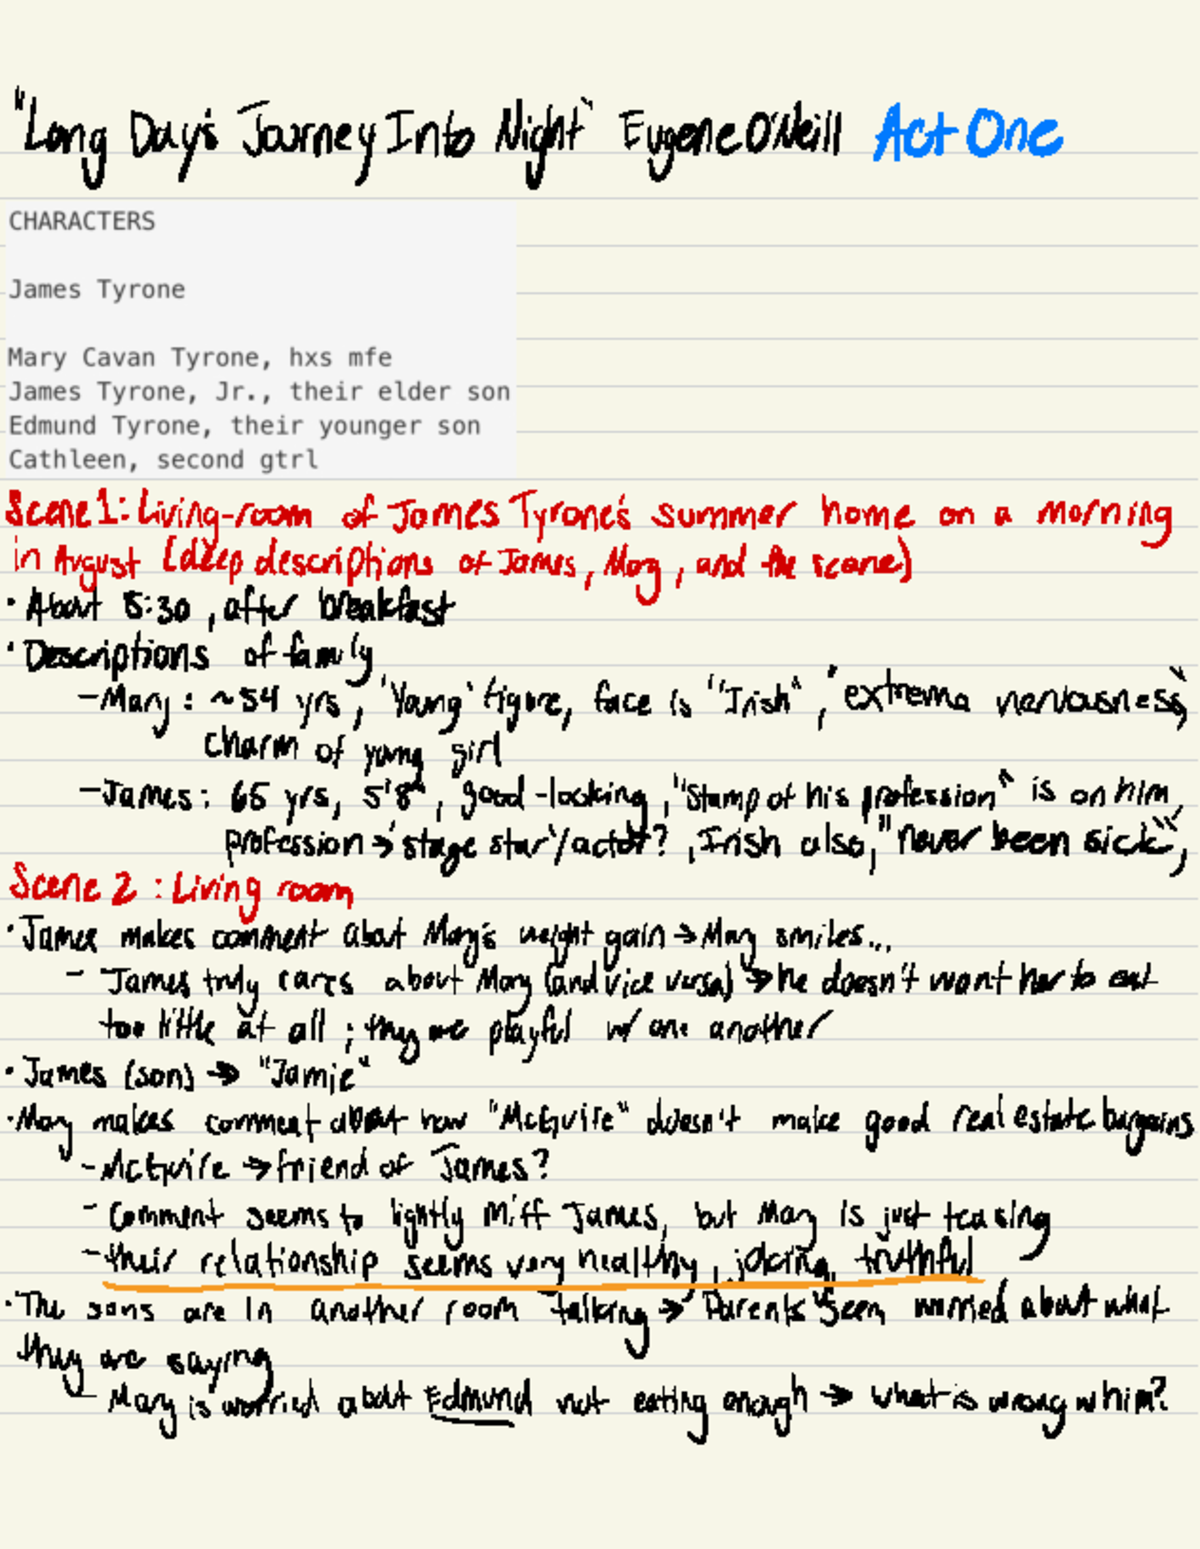 "Long Day's Journey Into Night" Eugene O'Neill Act One
CHARACTERS
James Tyrone
Mary Cavan Tyrone, hxs mfe
James Tyrone, Jr., their elder son
Edmund Tyrone, their younger son
Cathleen, second gtrl
Scene 1: Living-room of James Tyrone's summer home on a morning
in August (deep descriptions of James, Mary, and the scene)
• About 8:30, after breakfast
• Descriptions of family
- Mary: ~54 yrs, 'Young' figure, face is "Irish", "extreme nervousness",
charm of young girl
- James: 65 yrs, 5'8", good-looking, "Stamp of his profession" is on him,
profession → 'stage star'/actor?, Irish also, "never been sick",
Scene 2: Living room
• James makes comment about Mary's weight gain → Mary smiles...
- James truly cares about Mary (and vice versa) → he doesn't want her to eat
too little at all; they are playful w/ one another
• James (son) → "Jamie"
• Mary makes comment about how "McGuire" doesn't make good real estate bargains
- McGuire → friend of James?
- Comment seems to lightly miff James, but Mary is just teasing
- their relationship seems very healthy, joking, truthful
• The sons are in another room talking → Parents seem worried about what
they are saying
- Mary is worried about Edmund not eating enough → what is wrong w him?